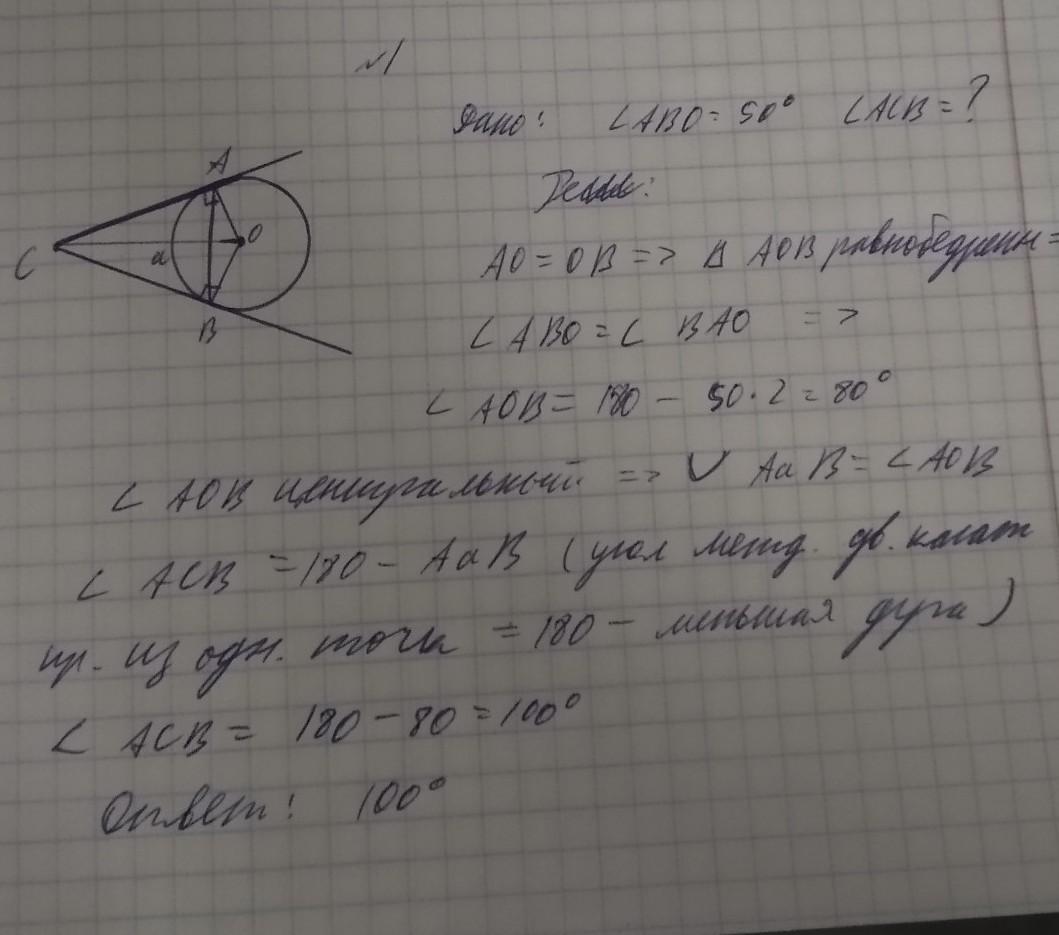 №1
Дано: ∠ABO = 50° ∠ACB = ?
A
O
C
a
B
AO = OB => Δ AOB равнобедренн =
∠ ABO = ∠ BAO =>
∠ AOB = 180 - 50 · 2 = 80°
∠ AOB центральный => ∪ AaB = ∠AOB
∠ ACB = 180 - AaB (угол межд. дв. касат
пр. из одн. точки = 180 - меньшая дуга)
∠ ACB = 180 - 80 = 100°
Ответ: 100°